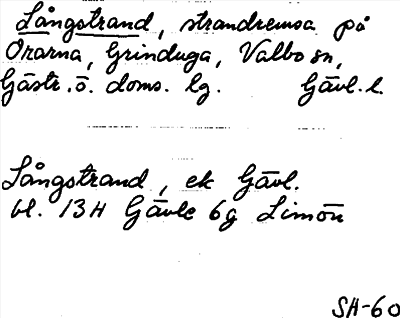 Långstrand, strandremsa på
Orarna, Grinduga, Valbo sn,
Gästr. ö. doms. lg. Gävl. l.
Långstrand, ek Gävl.
bl. 13H Gävle 6g Limön
SH-60